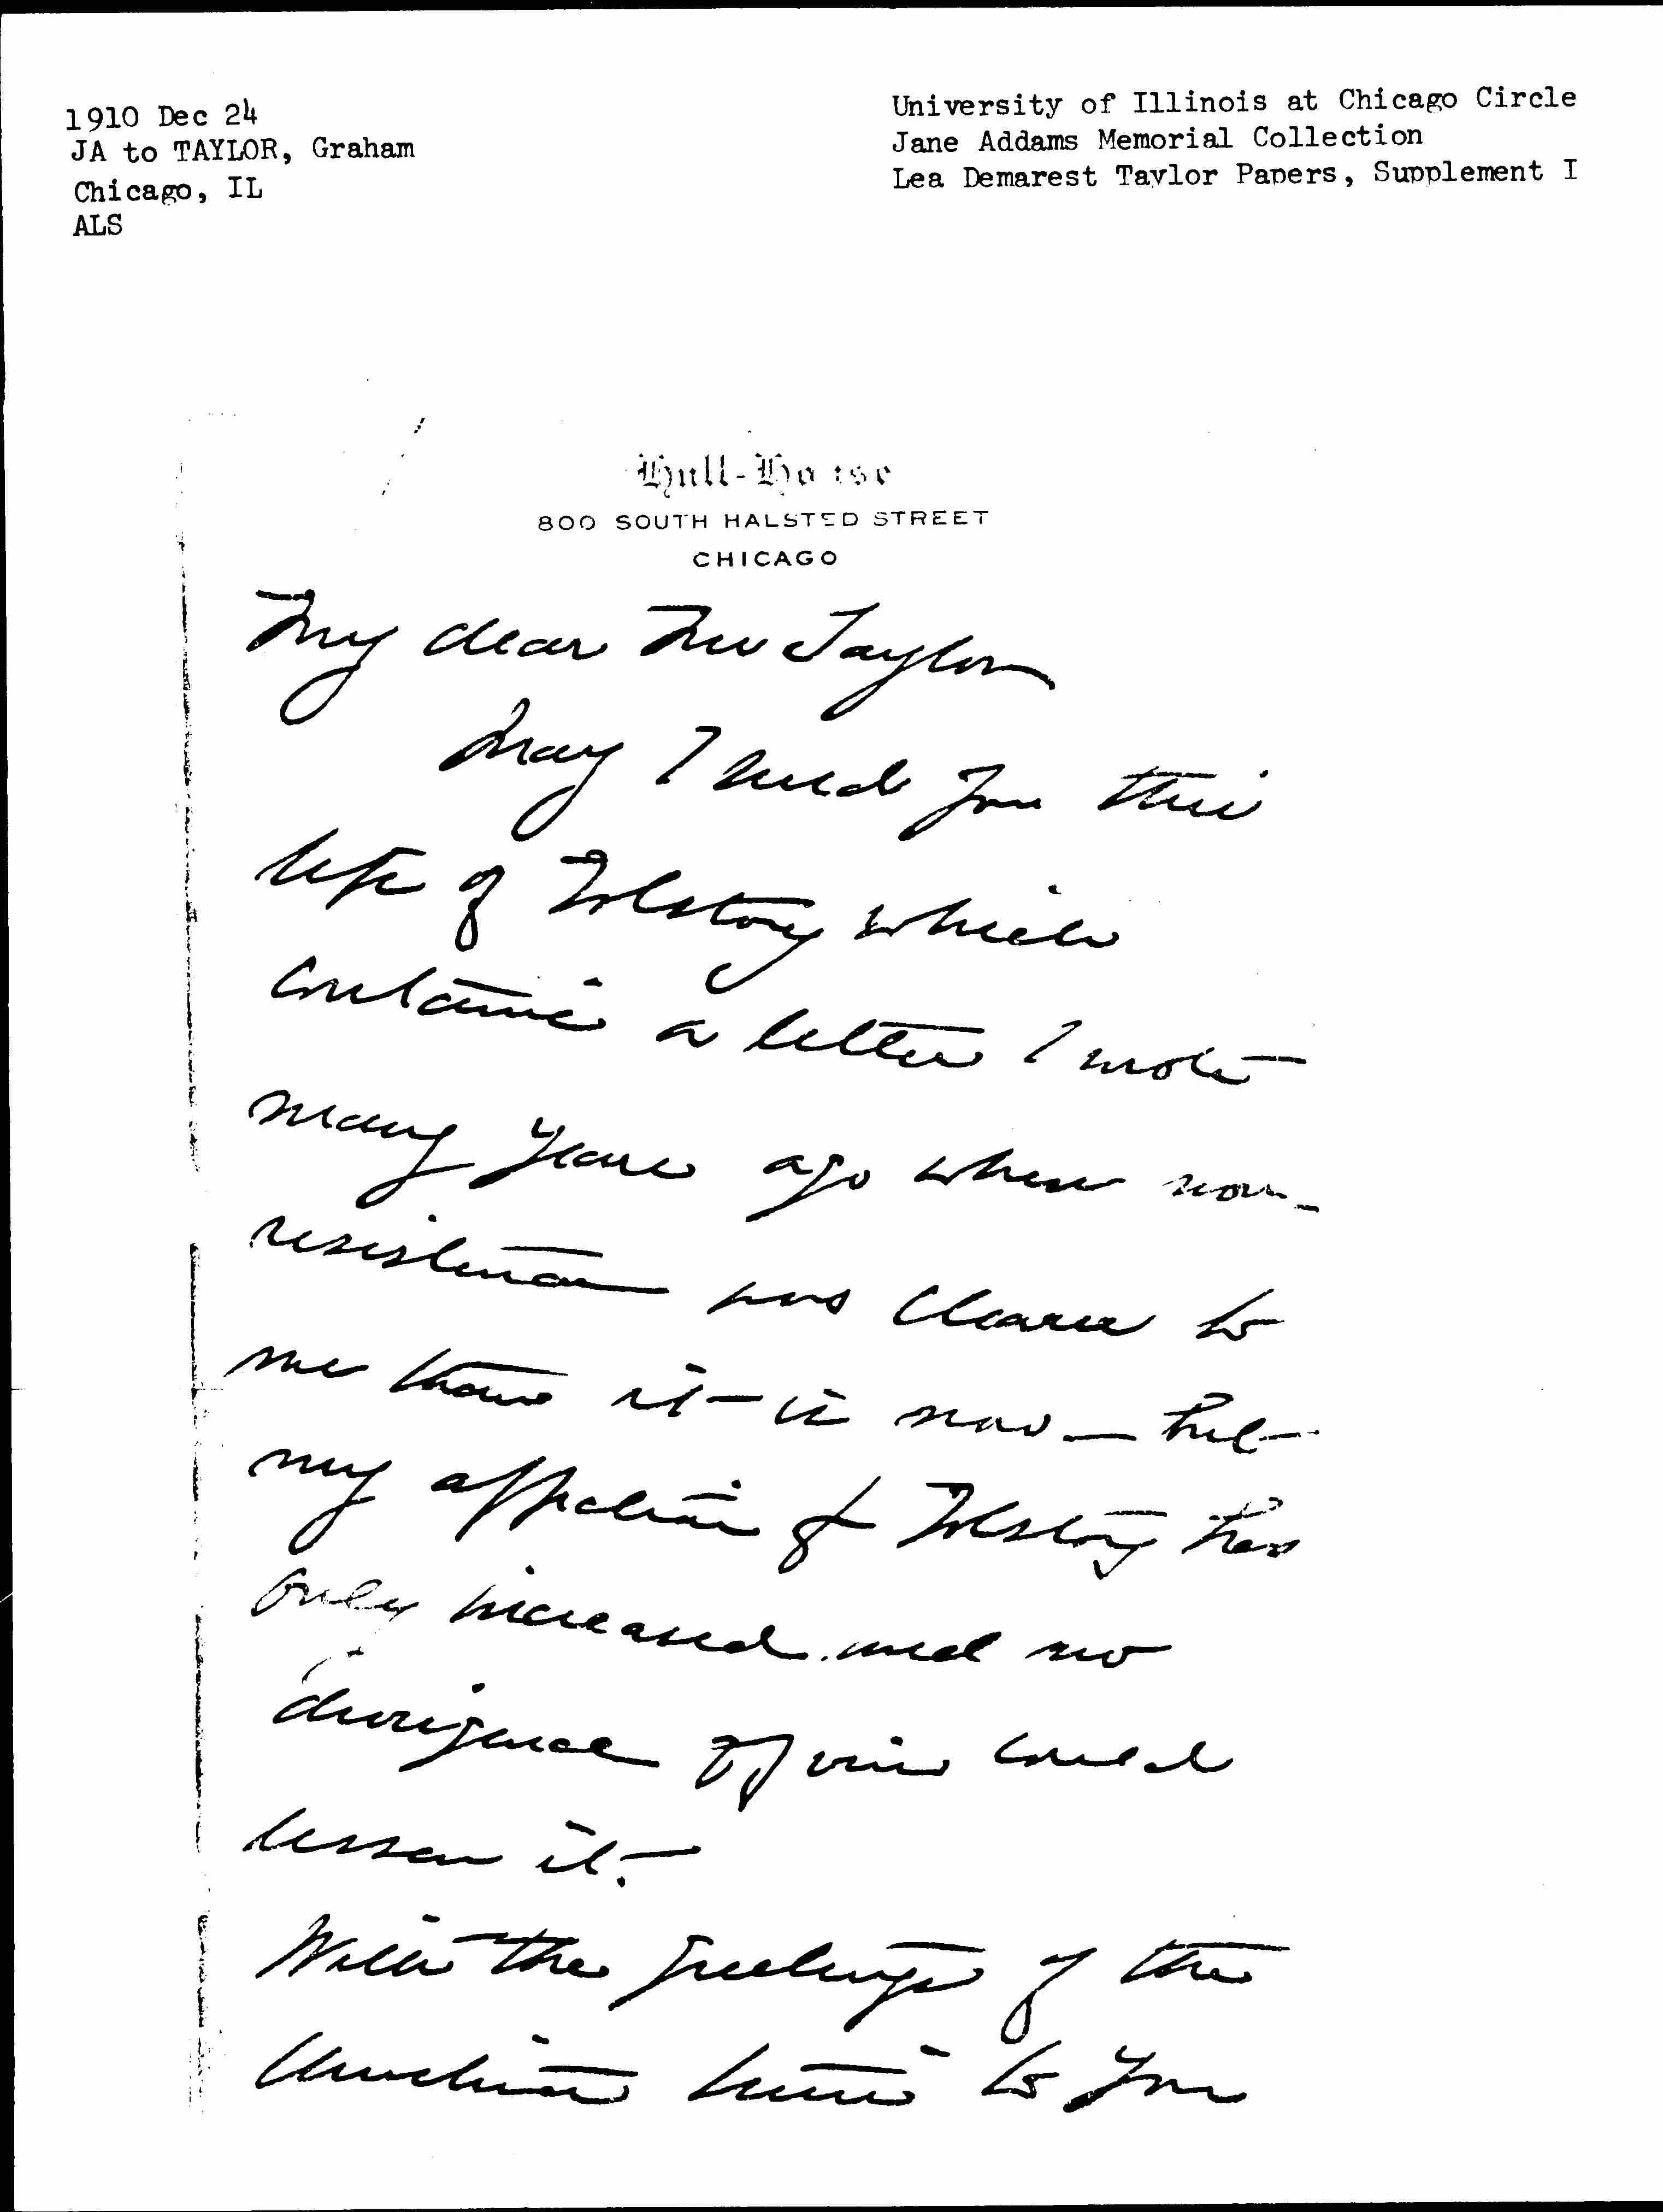 1910 Dec 24
JA to TAYLOR, Graham
Chicago, IL
ALS
University of Illinois at Chicago Circle
Jane Addams Memorial Collection
Lea Demarest Taylor Papers, Supplement I
Hull-House
800 SOUTH HALSTED STREET
CHICAGO
My dear Mr Taylor
May I send you this
life of Tolstoy which
contains a letter I wrote
many years ago when non-
resistance was clearer to
me than it is now — but
my affection for Tolstoy has
only increased and no
divergence of view could
lessen it.
With the greetings of the
Christmas time to you